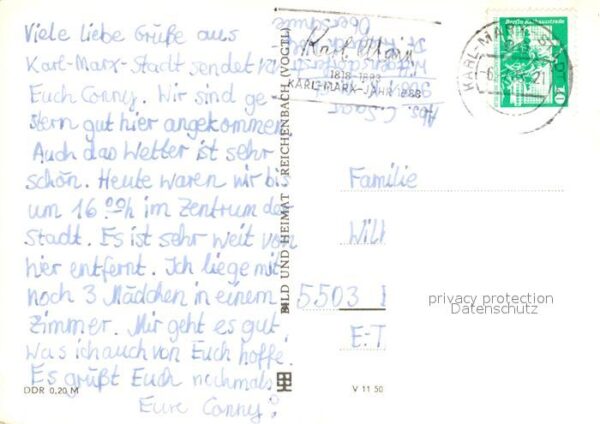 Viele liebe Grüße aus
Karl-Marx-Stadt sendet
Euch Conny. Wir sind ge
stern gut hier angekommen
Auch das Wetter ist sehr
schön. Heute waren wir bis
um 16 00h im Zentrum der
Stadt. Es ist sehr weit von
hier entfernt. Ich liege mit
noch 3 Mädchen in einem
Zimmer. Mir geht es gut,
was ich auch von Euch hoffe.
Es grüßt Euch nochmals
Eure Conny!
DDR 0,20 M
BILD UND HEIMAT REICHENBACH (VOGTL)
V 11 50
Abs. C. Saar
Oberschule
Karl Marx
1818-1883
KARL-MARX-JAHR 1983
KARL-MARX-ST
Berlin
10
Familie
Will
5503
E.-T
privacy protection
Datenschutz